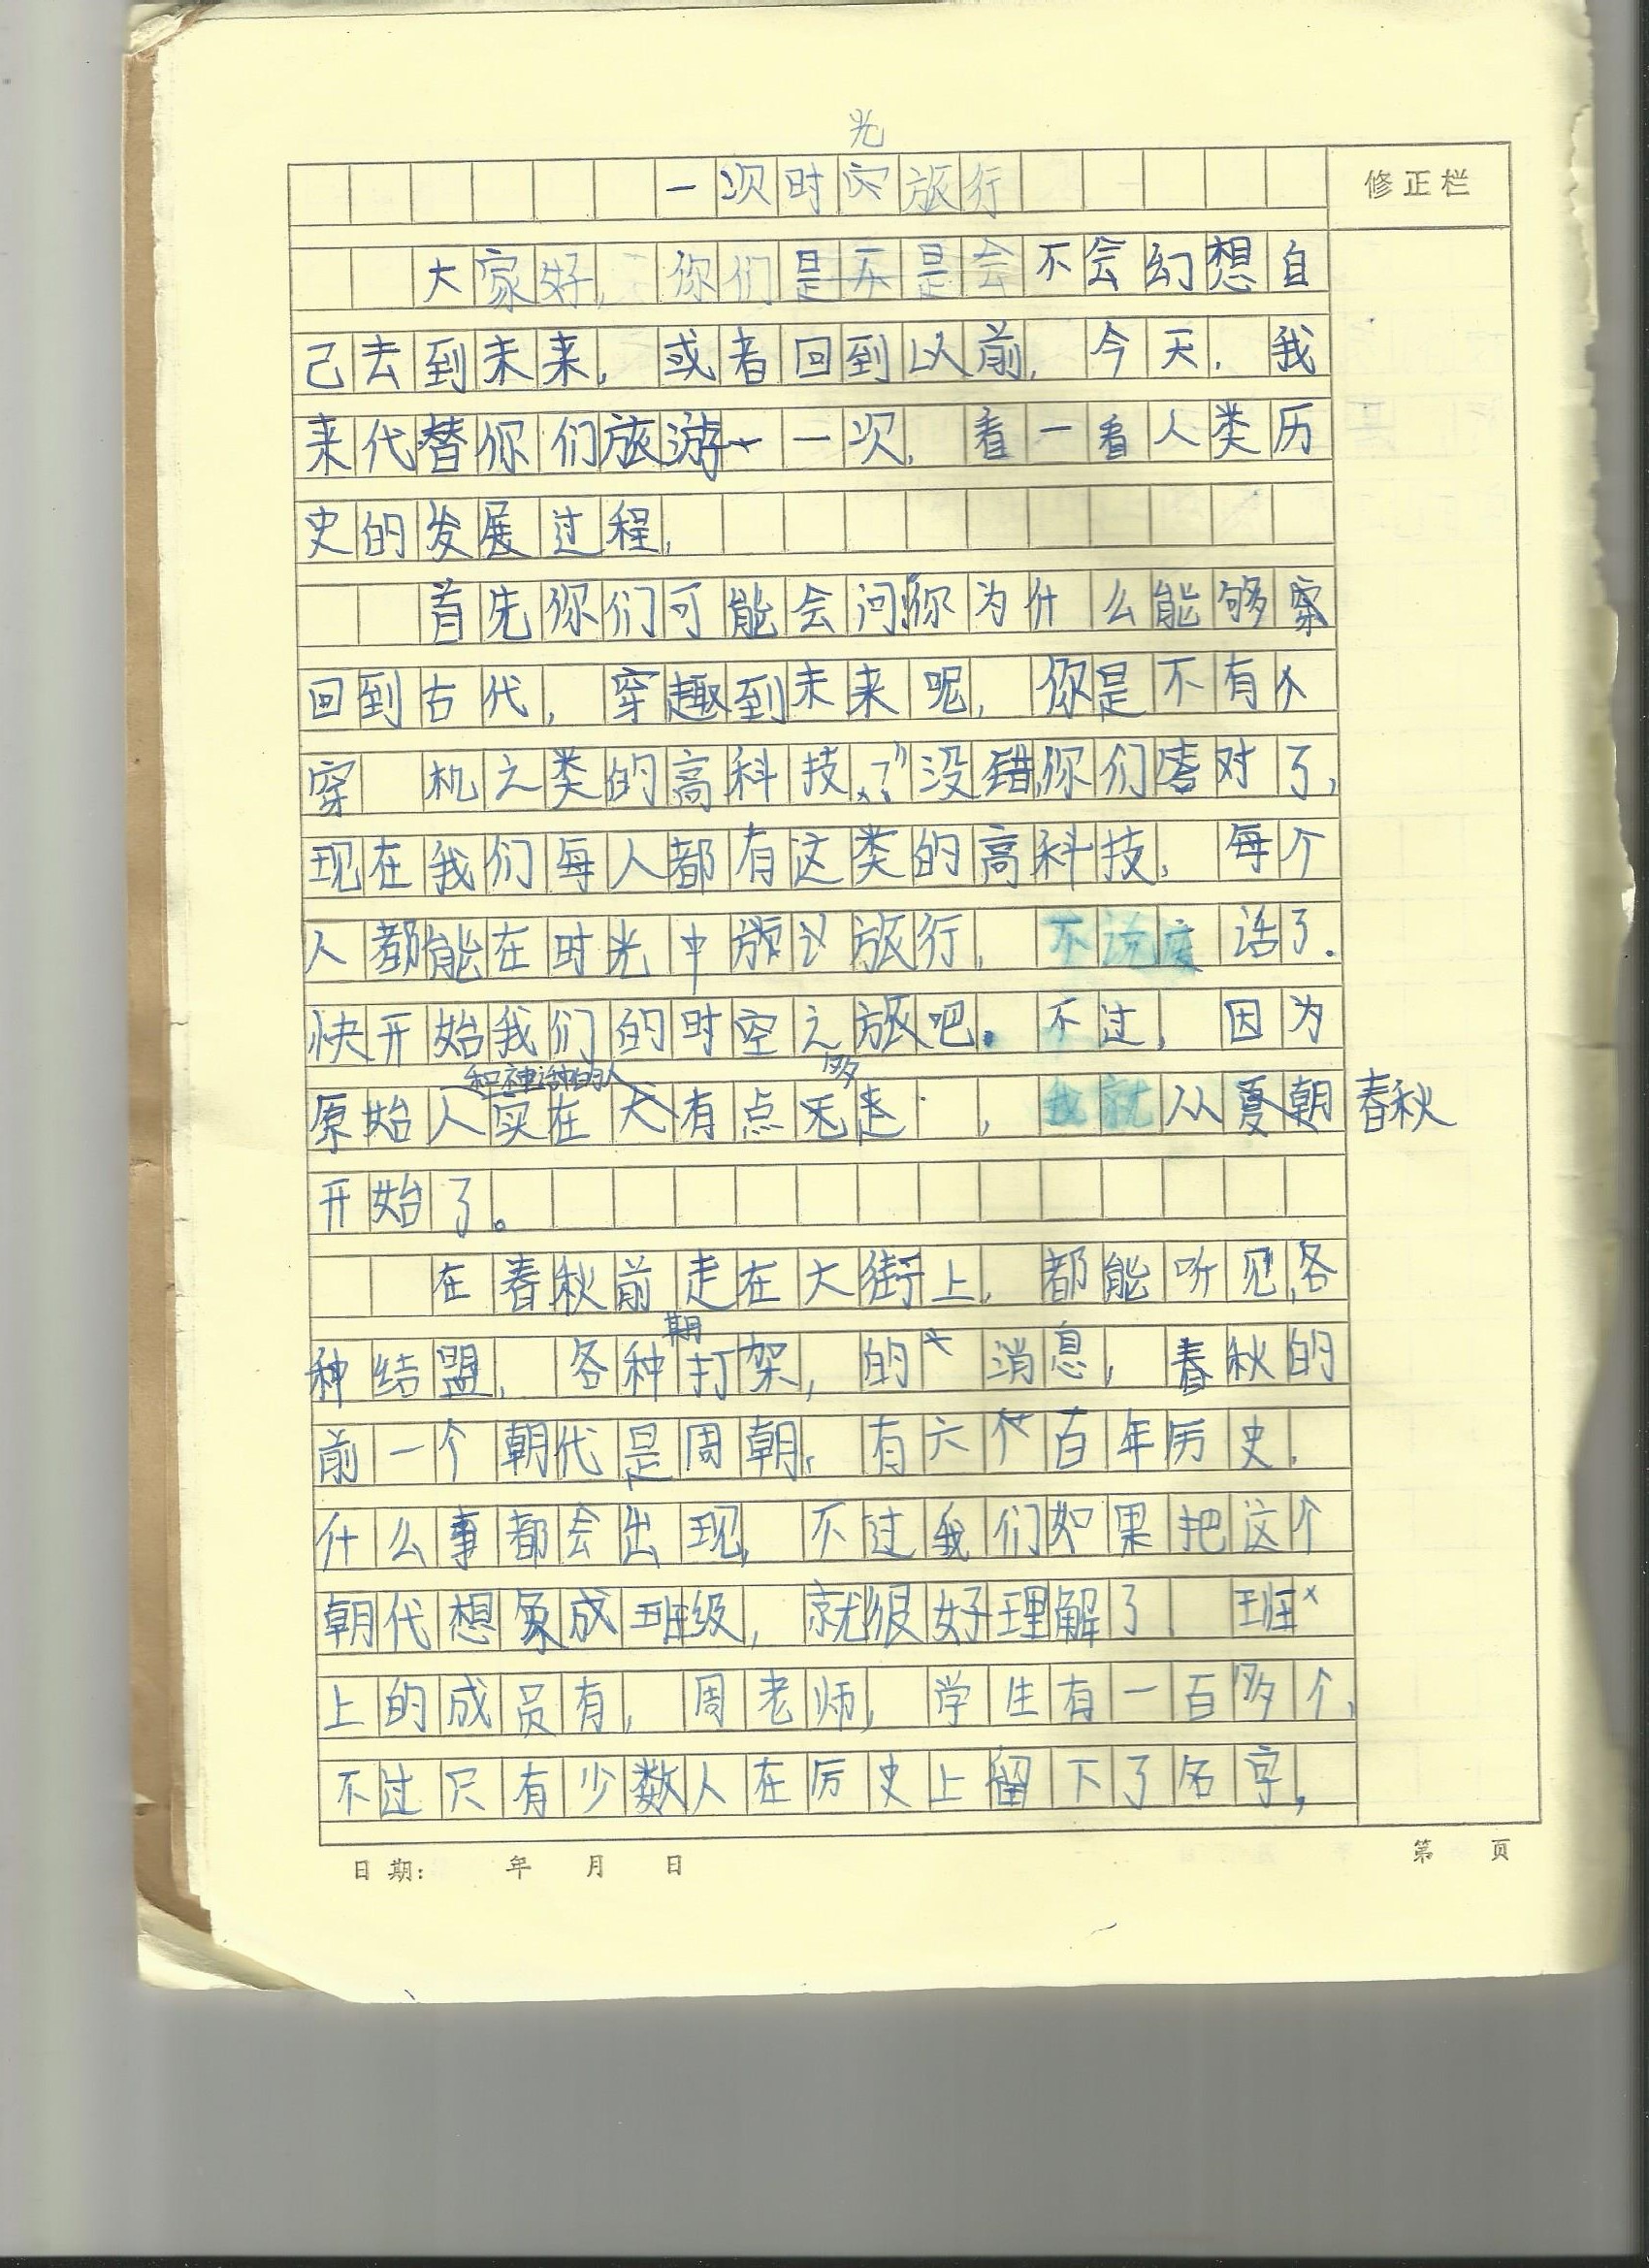 光
一次时空旅行
修正栏
大家好，你们是不是会不会幻想自
己去到未来，或者回到以前，今天，我
来代替你们旅游一一次，看一看人类历
史的发展过程，
首先你们可能会问“你为什么能够穿
回到古代，穿越到未来呢，你是不有
穿 机之类的高科技，？”没错，你们答对了，
现在我们每人都有这类的高科技，每个
人都能在时光中旅行，不说废话了．
快开始我们的时空之旅吧。不过，因为
和神话种的人 多
原始人实在 有点无 ，我就从夏朝 春秋
开始了。
在春秋前走在大街上，都能听见，各
期
种结盟，各种打架，的 消息，春秋的
前一个朝代是周朝，有六个百年历史．
什么事都会出现，不过我们如果把这个
朝代想象成班级，就很好理解了 班
上的成员有，周老师，学生有一百多个，
不过只有少数人在历史上留下了名字，
日期： 年 月 日 第 页